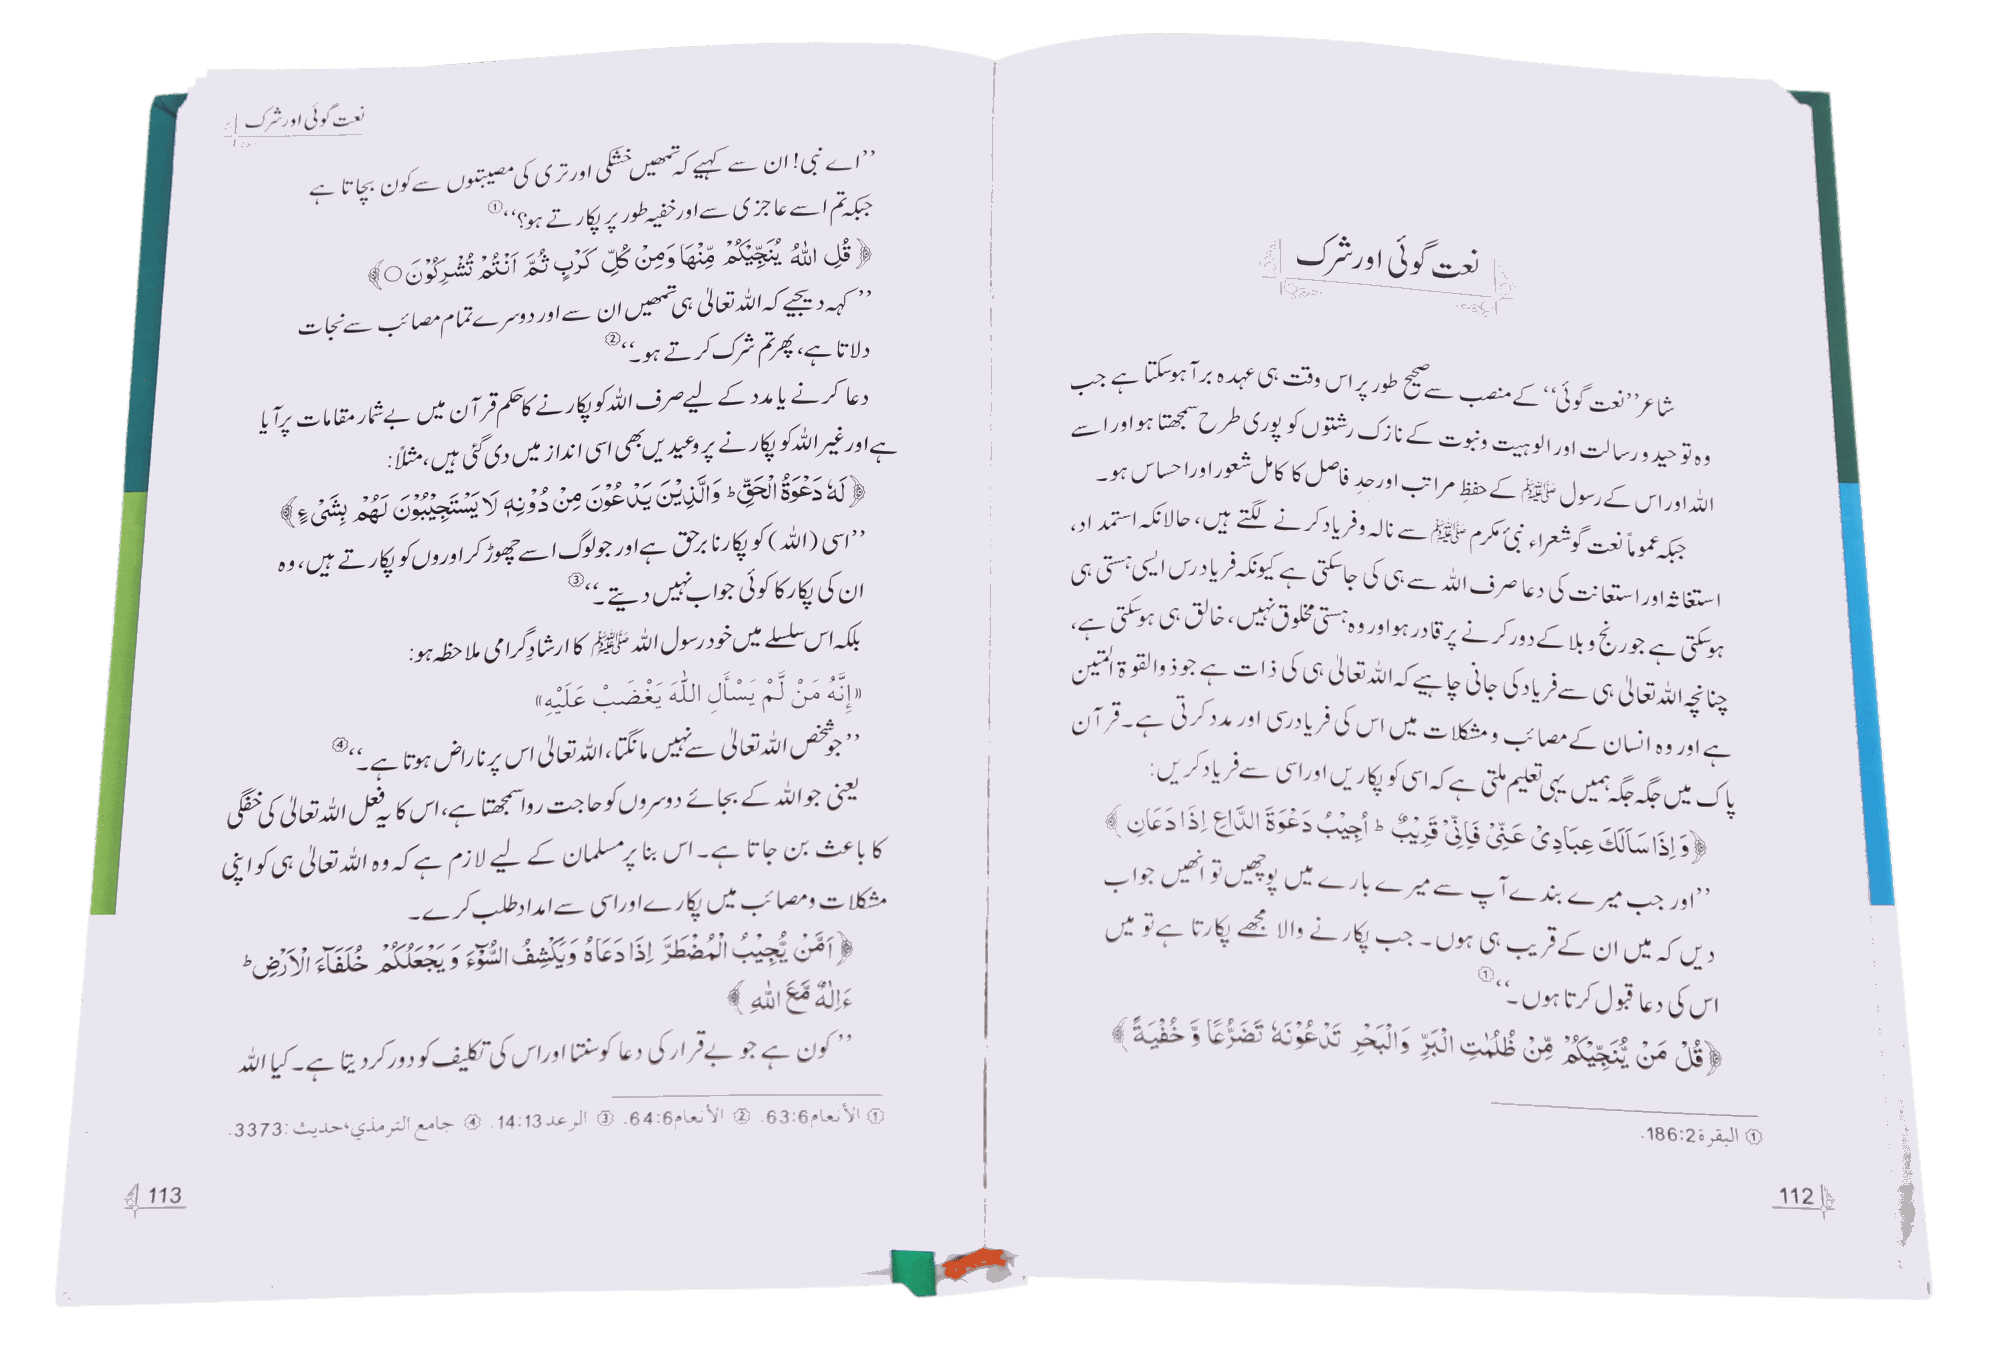 نعت گوئی اور شرک
شاعر ’’نعت گوئی‘‘ کے منصب سے صحیح طور پر اس وقت ہی عہدہ برآ ہوسکتا ہے جب
وہ توحید و رسالت اور الوہیت و نبوت کے نازک رشتوں کو پوری طرح سمجھتا ہو اور اسے
اللہ اور اس کے رسول ﷺ کے حفظِ مراتب اور حدِ فاصل کا کامل شعور اور احساس ہو۔
جبکہ عموماً نعت گو شعراء نبیٔ مکرم ﷺ سے نالہ و فریاد کرنے لگتے ہیں، حالانکہ استمداد،
استغاثہ اور استعانت کی دعا صرف اللہ سے ہی کی جاسکتی ہے کیونکہ فریاد رس ایسی ہستی ہی
ہوسکتی ہے جو رنج و بلا کے دور کرنے پر قادر ہو اور وہ ہستی مخلوق نہیں، خالق ہی ہوسکتی ہے،
چنانچہ اللہ تعالیٰ ہی سے فریاد کی جانی چاہیے کہ اللہ تعالیٰ ہی کی ذات ہے جو ذوالقوۃ المتین
ہے اور وہ انسان کے مصائب و مشکلات میں اس کی فریاد رسی اور مدد کرتی ہے۔ قرآن
پاک میں جگہ جگہ ہمیں یہی تعلیم ملتی ہے کہ اسی کو پکاریں اور اسی سے فریاد کریں:
﴿وَاِذَا سَاَلَكَ عِبَادِیْ عَنِّیْ فَاِنِّیْ قَرِیْبٌ ؕ اُجِیْبُ دَعْوَةَ الدَّاعِ اِذَا دَعَانِ﴾
’’اور جب میرے بندے آپ سے میرے بارے میں پوچھیں تو انھیں جواب
دیں کہ میں ان کے قریب ہی ہوں۔ جب پکارنے والا مجھے پکارتا ہے تو میں
اس کی دعا قبول کرتا ہوں۔‘‘ ①
﴿قُلْ مَنْ یُّنَجِّیْكُمْ مِّنْ ظُلُمٰتِ الْبَرِّ وَالْبَحْرِ تَدْعُوْنَهٗ تَضَرُّعًا وَّ خُفْیَةً﴾
① البقرة 186:2.
112
نعت گوئی اور شرک
’’اے نبی! ان سے کہیے کہ تمھیں خشکی اور تری کی مصیبتوں سے کون بچاتا ہے
جبکہ تم اسے عاجزی سے اور خفیہ طور پر پکارتے ہو؟‘‘ ①
﴿قُلِ اللّٰهُ یُنَجِّیْكُمْ مِّنْهَا وَمِنْ كُلِّ كَرْبٍ ثُمَّ اَنْتُمْ تُشْرِكُوْنَ ○﴾
’’کہہ دیجیے کہ اللہ تعالیٰ ہی تمھیں ان سے اور دوسرے تمام مصائب سے نجات
دلاتا ہے، پھر تم شرک کرتے ہو۔‘‘ ②
دعا کرنے یا مدد کے لیے صرف اللہ کو پکارنے کا حکم قرآن میں بے شمار مقامات پر آیا
ہے اور غیر اللہ کو پکارنے پر وعیدیں بھی اسی انداز میں دی گئی ہیں، مثلاً:
﴿لَهٗ دَعْوَةُ الْحَقِّ ؕ وَالَّذِیْنَ یَدْعُوْنَ مِنْ دُوْنِهٖ لَا یَسْتَجِیْبُوْنَ لَهُمْ بِشَیْءٍ﴾
’’اسی (اللہ) کو پکارنا برحق ہے اور جو لوگ اسے چھوڑ کر اوروں کو پکارتے ہیں، وہ
ان کی پکار کا کوئی جواب نہیں دیتے۔‘‘ ③
بلکہ اس سلسلے میں خود رسول اللہ ﷺ کا ارشادِ گرامی ملاحظہ ہو:
«إِنَّهُ مَنْ لَّمْ يَسْأَلِ اللّٰهَ يَغْضَبْ عَلَيْهِ»
’’جو شخص اللہ تعالیٰ سے نہیں مانگتا، اللہ تعالیٰ اس پر ناراض ہوتا ہے۔‘‘ ④
یعنی جو اللہ کے بجائے دوسروں کو حاجت روا سمجھتا ہے، اس کا یہ فعل اللہ تعالیٰ کی خفگی
کا باعث بن جاتا ہے۔ اس بنا پر مسلمان کے لیے لازم ہے کہ وہ اللہ تعالیٰ ہی کو اپنی
مشکلات و مصائب میں پکارے اور اسی سے امداد طلب کرے۔
﴿اَمَّنْ یُّجِیْبُ الْمُضْطَرَّ اِذَا دَعَاهُ وَیَكْشِفُ السُّوْٓءَ وَ یَجْعَلُكُمْ خُلَفَآءَ الْاَرْضِ ؕ
ءَاِلٰهٌ مَّعَ اللّٰهِ﴾
’’کون ہے جو بے قرار کی دعا کو سنتا اور اس کی تکلیف کو دور کردیتا ہے۔ کیا اللہ
① الأنعام 63:6. ② الأنعام 64:6. ③ الرعد 14:13. ④ جامع الترمذي، حديث: 3373.
113